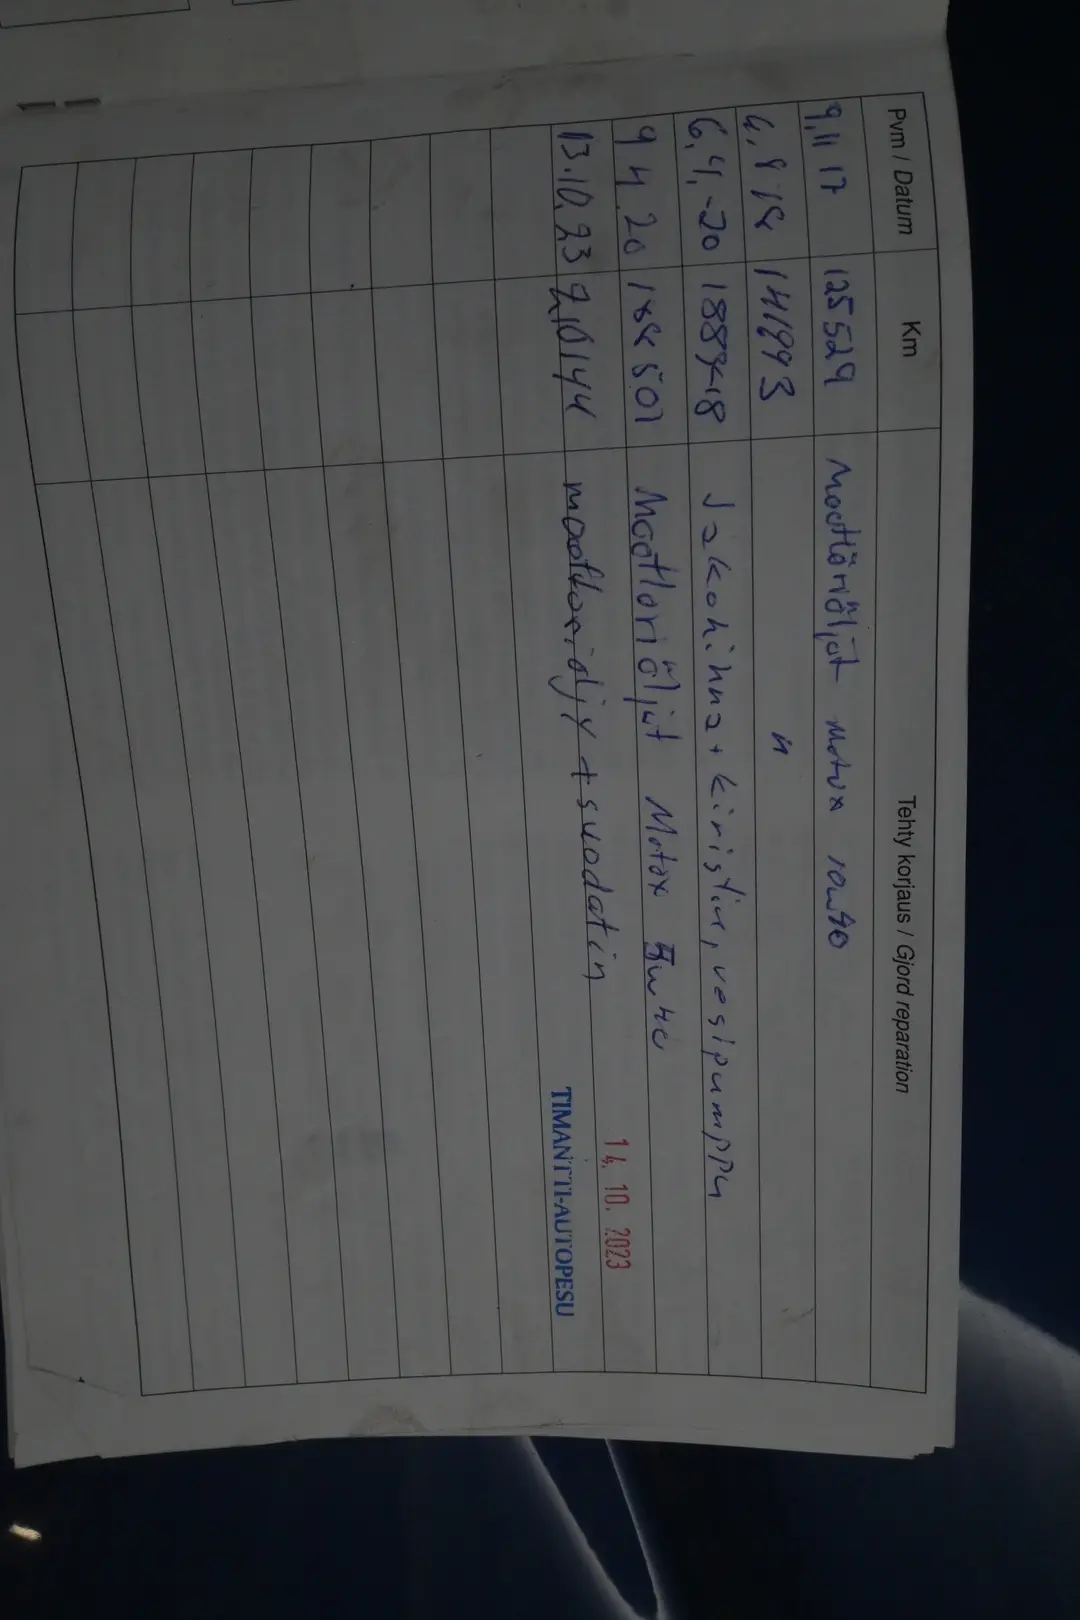 Pvm / Datum Km Tehty korjaus / Gjord reparation
9.11 17 125529 Moottoriöljyt Motox 10w40
4.8 18 141993 "
6.4.-20 188948 Jakohihna + kiristin, vesipumppu
9 4.20 188501 Moottoriöljyt Motox 5w40
14. 10. 2023
13.10.23 210144 moottoriöljy + suodatin
TIMANTTI-AUTOPESU